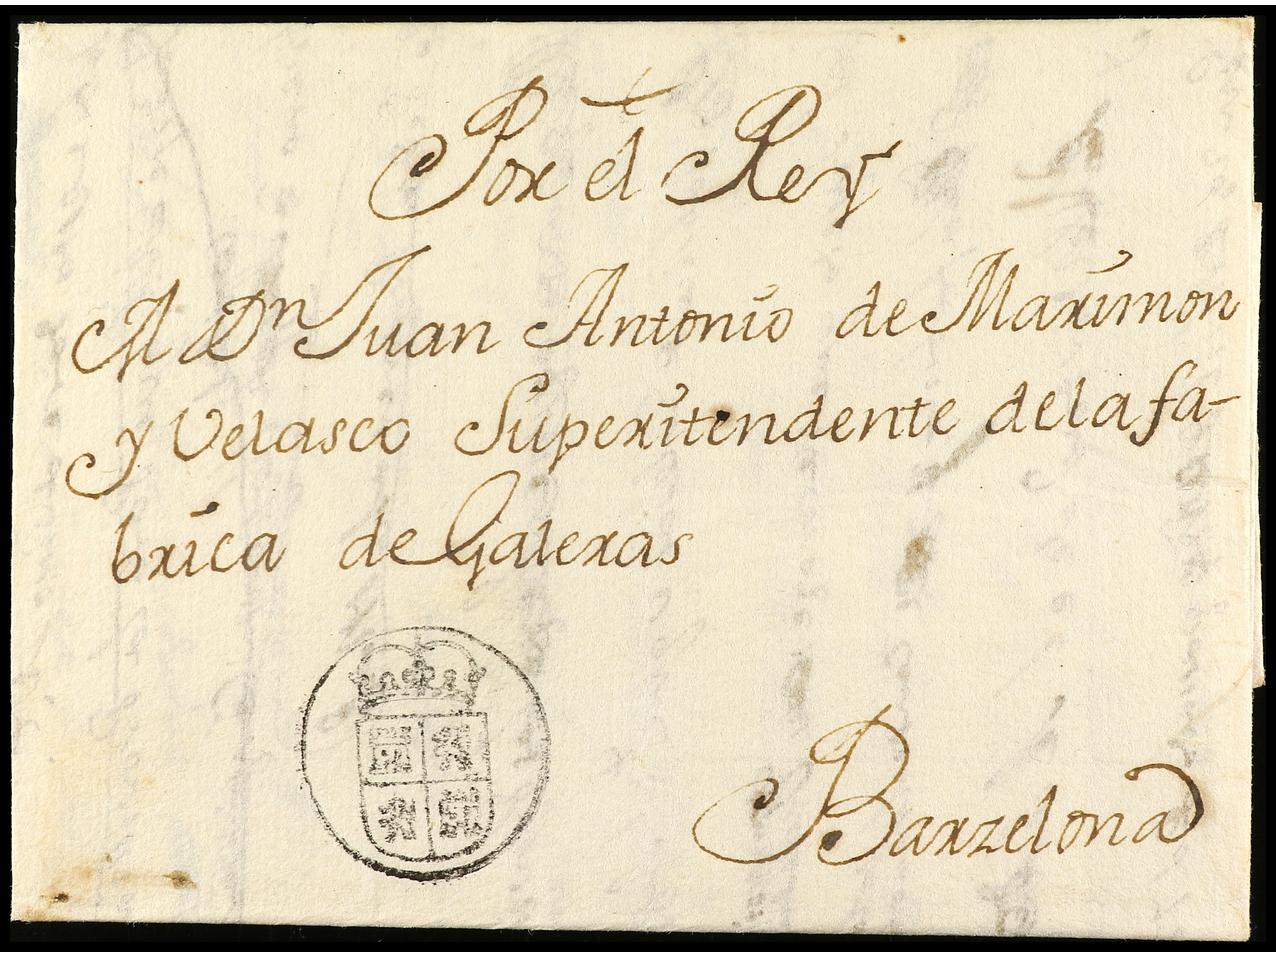 Por el Rey
A Dn Juan Antonio de Marimon
y Velasco Superitendente de la fa-
brica de Galeras
Barzelona